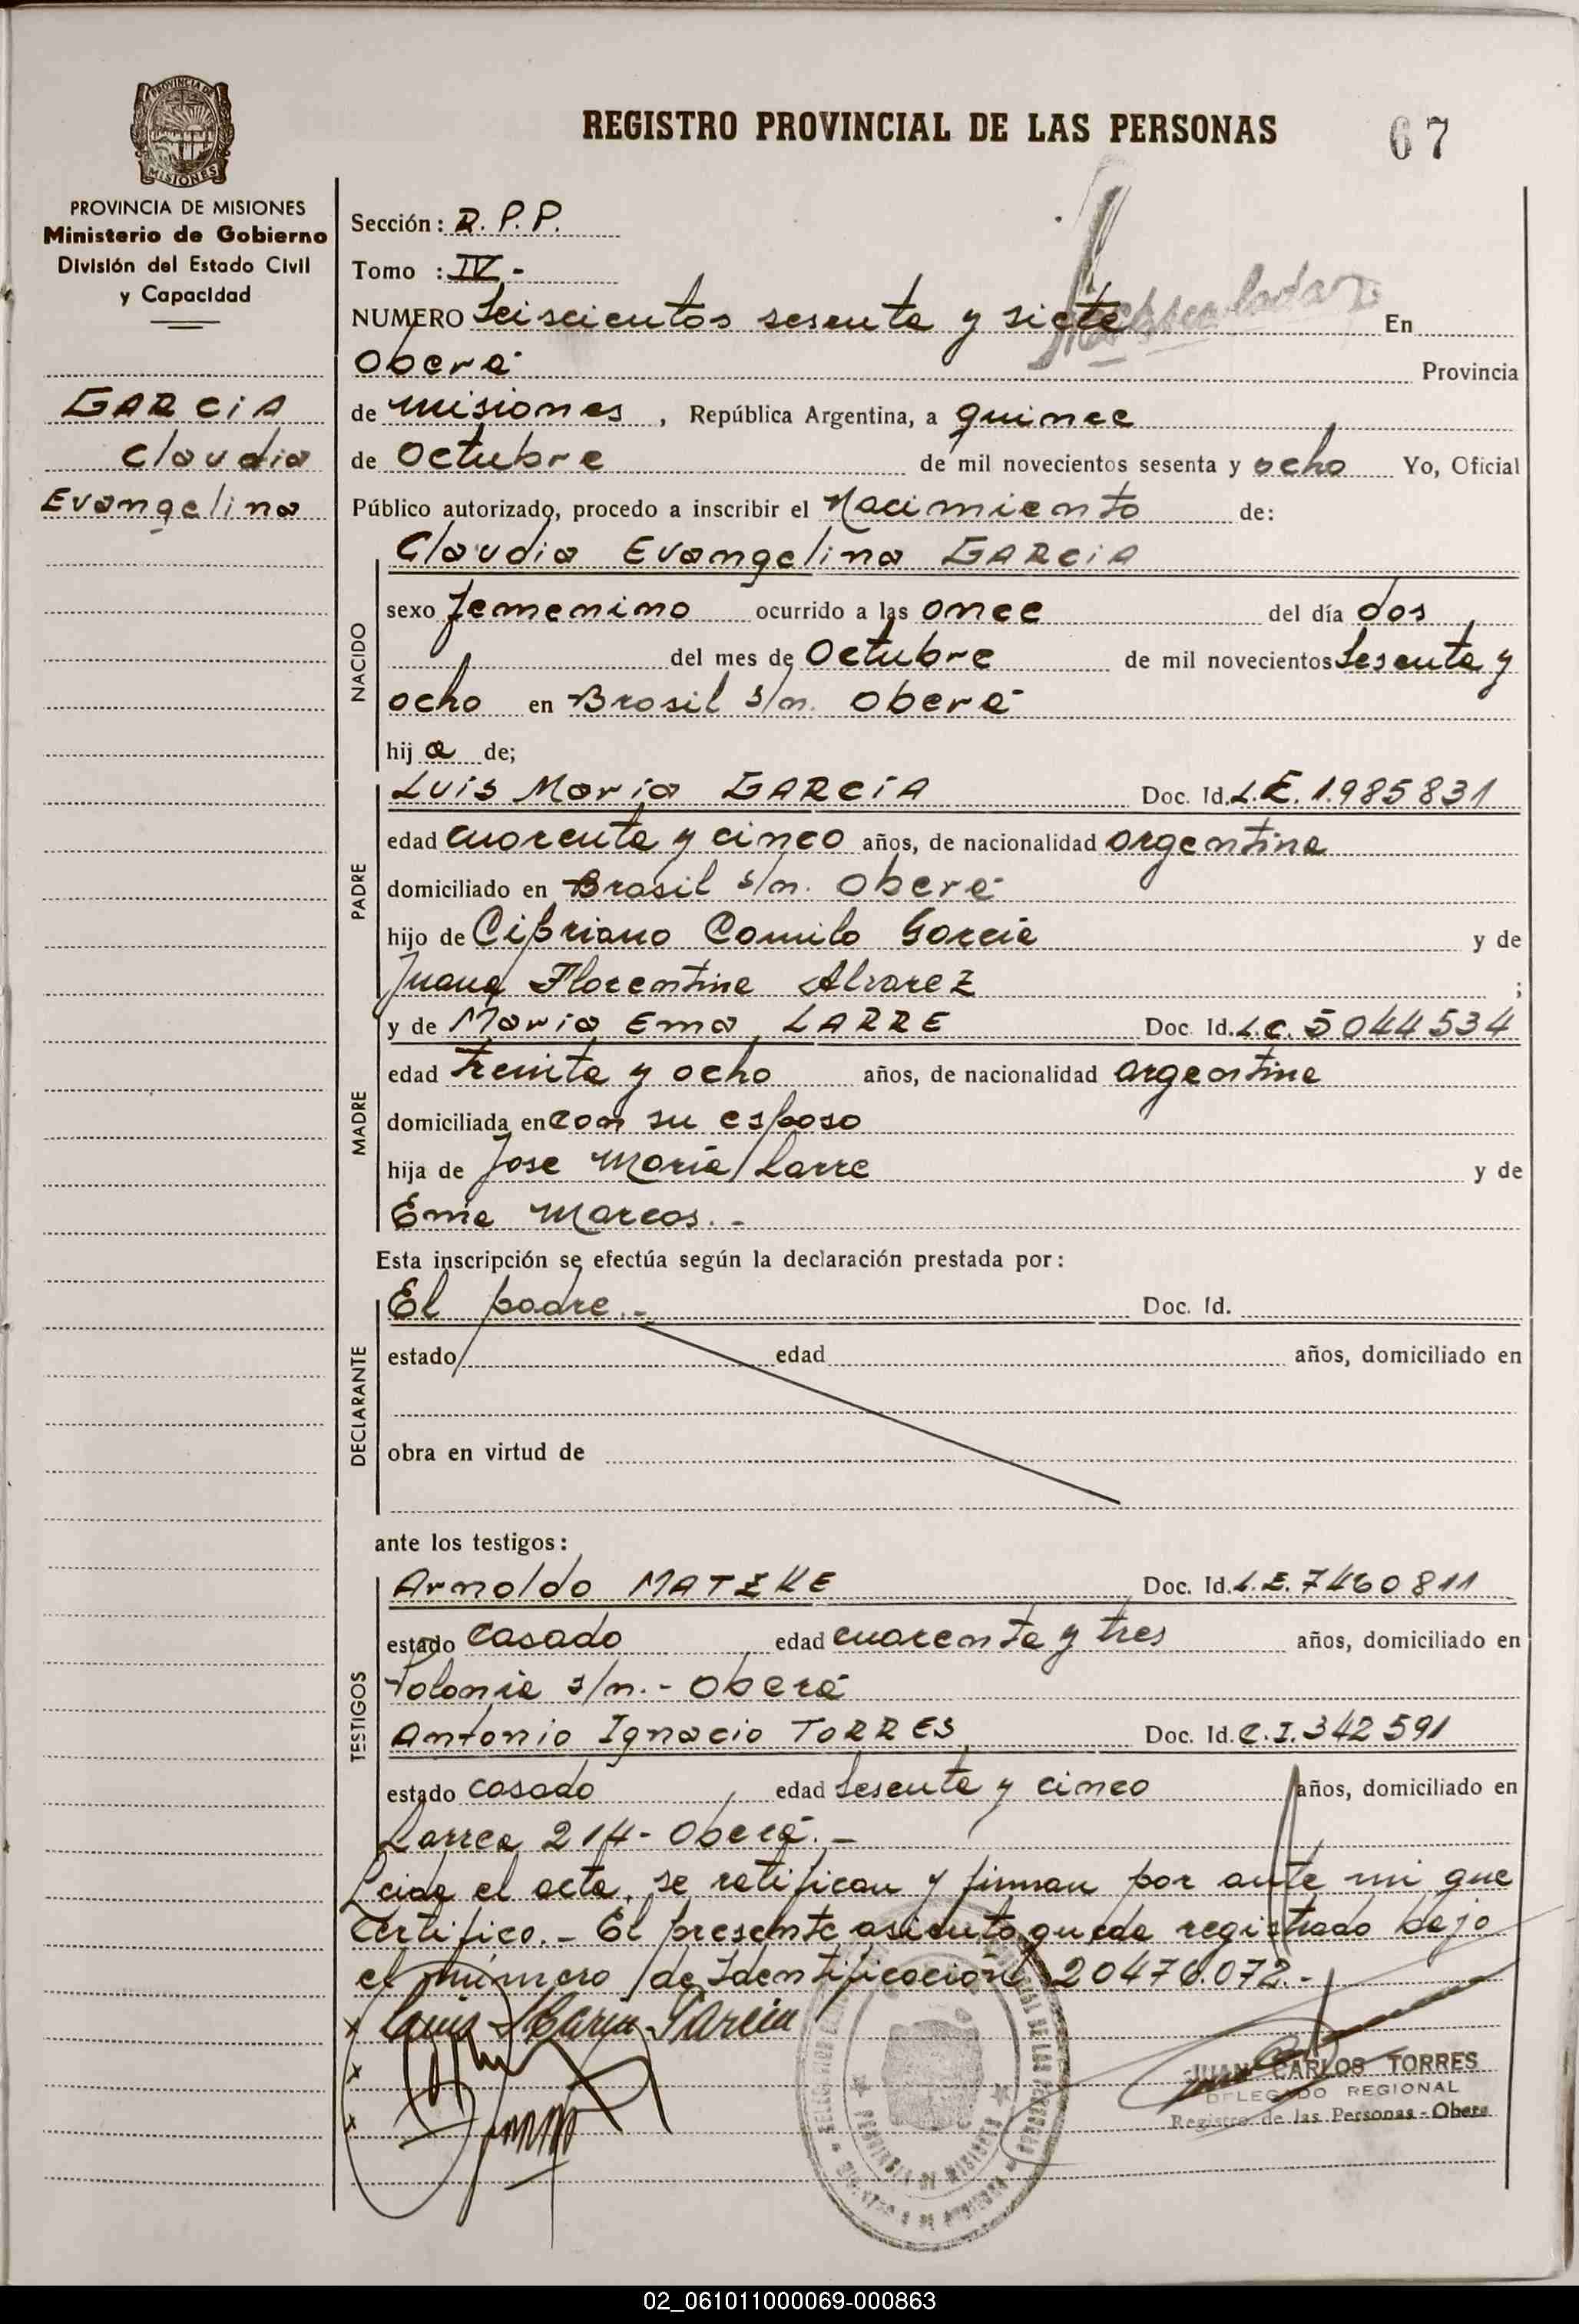 REGISTRO PROVINCIAL DE LAS PERSONAS
67
PROVINCIA DE
MISIONES
PROVINCIA DE MISIONES
Ministerio de Gobierno
División del Estado Civil
y Capacidad
GARCIA
Claudia
Evangelina
Sección: R.P.P.
Tomo : IV-
NUMERO Seiscientos sesenta y siete En
Oberá Provincia
de Misiones, República Argentina, a quince
de Octubre de mil novecientos sesenta y ocho Yo, Oficial
Público autorizado, procedo a inscribir el Nacimiento de:
Claudia Evangelina GARCIA
NACIDO
sexo femenino ocurrido a las once del día dos
del mes de Octubre de mil novecientos sesenta y
ocho en Brasil s/n. Oberá
hij a de;
PADRE
Luis Maria GARCIA Doc. Id. L.E. 1.985831
edad cuarenta y cinco años, de nacionalidad argentina
domiciliado en Brasil s/n. Oberá
hijo de Cipriano Camilo García y de
Juana Florentina Alvarez ;
MADRE
y de Maria Ema LARRE Doc. Id. L.C. 5044534
edad treinta y ocho años, de nacionalidad argentina
domiciliada en con su esposo
hija de Jose María Larre y de
Ema Marcos.-
Esta inscripción se efectúa según la declaración prestada por:
DECLARANTE
El padre.- Doc. Id.
estado edad años, domiciliado en
obra en virtud de
ante los testigos:
TESTIGOS
Arnoldo MATZKE Doc. Id. L.E. 7460811
estado casado edad cuarenta y tres años, domiciliado en
Polonia s/n.- Oberá
Antonio Ignacio TORRES Doc. Id. C.I. 342591
estado casado edad sesenta y cinco años, domiciliado en
Larrea 214- Oberá.-
Leida el acta, se ratifican y firman por ante mi que
certifico.- El presente asiento queda registrado bajo
el número de Identificación 20476.072.-
x Luis Maria Garcia
x
x
JUAN CARLOS TORRES
DELEGADO REGIONAL
Registro de las Personas - Oberá
PROVINCIA DE MISIONES
02_061011000069-000863